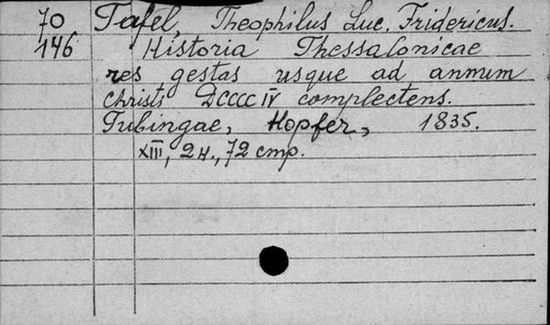 70 Tafel, Theophilus Luc. Fridericus.
146 Historia Thessalonicae
res gestas usque ad annum
Christi DCCCCIV complectens.
Tubingae, Hopfer, 1835.
XIII, 2 н., 72 стр.